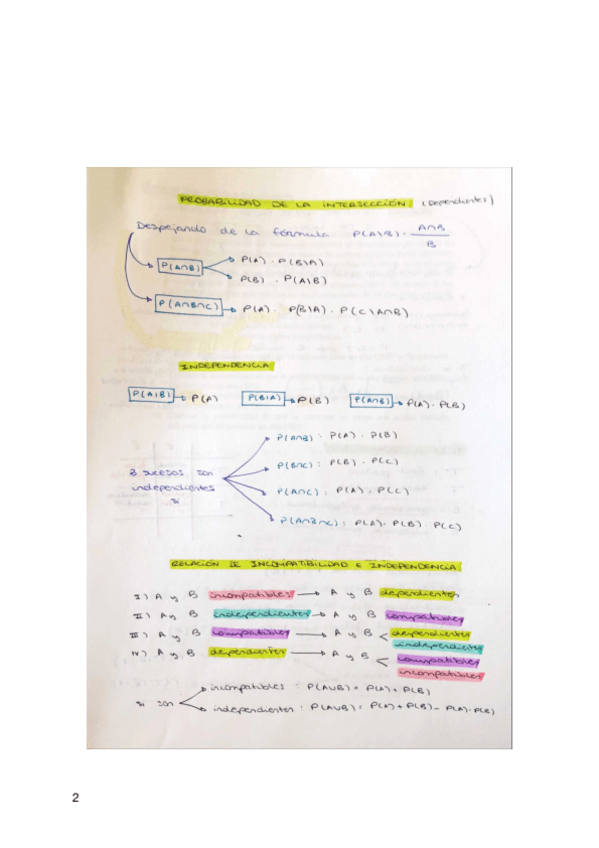 PROBABILIDAD DE LA INTERSECCIÓN (Dependientes)
Despejando de la fórmula P(A\B) = A∩B / B
P(A∩B) → P(A) · P(B\A)
P(B) · P(A\B)
P(A∩B∩C) → P(A) · P(B\A) · P(C\A∩B)
INDEPENDENCIA
P(A\B) → P(A) P(B\A) → P(B) P(A∩B) → P(A) · P(B)
3 sucesos son independientes si
P(A∩B) = P(A) · P(B)
P(B∩C) = P(B) · P(C)
P(A∩C) = P(A) · P(C)
P(A∩B∩C) = P(A) · P(B) · P(C)
RELACIÓN DE INCOMPATIBILIDAD E INDEPENDENCIA
I) A y B incompatibles → A y B dependientes
II) A y B independientes → A y B compatibles
III) A y B compatibles → A y B < dependientes
independientes
IV) A y B dependientes → A y B < compatibles
incompatibles
si son → incompatibles : P(A∪B) = P(A) + P(B)
independientes : P(A∪B) = P(A) + P(B) - P(A) · P(B)
2